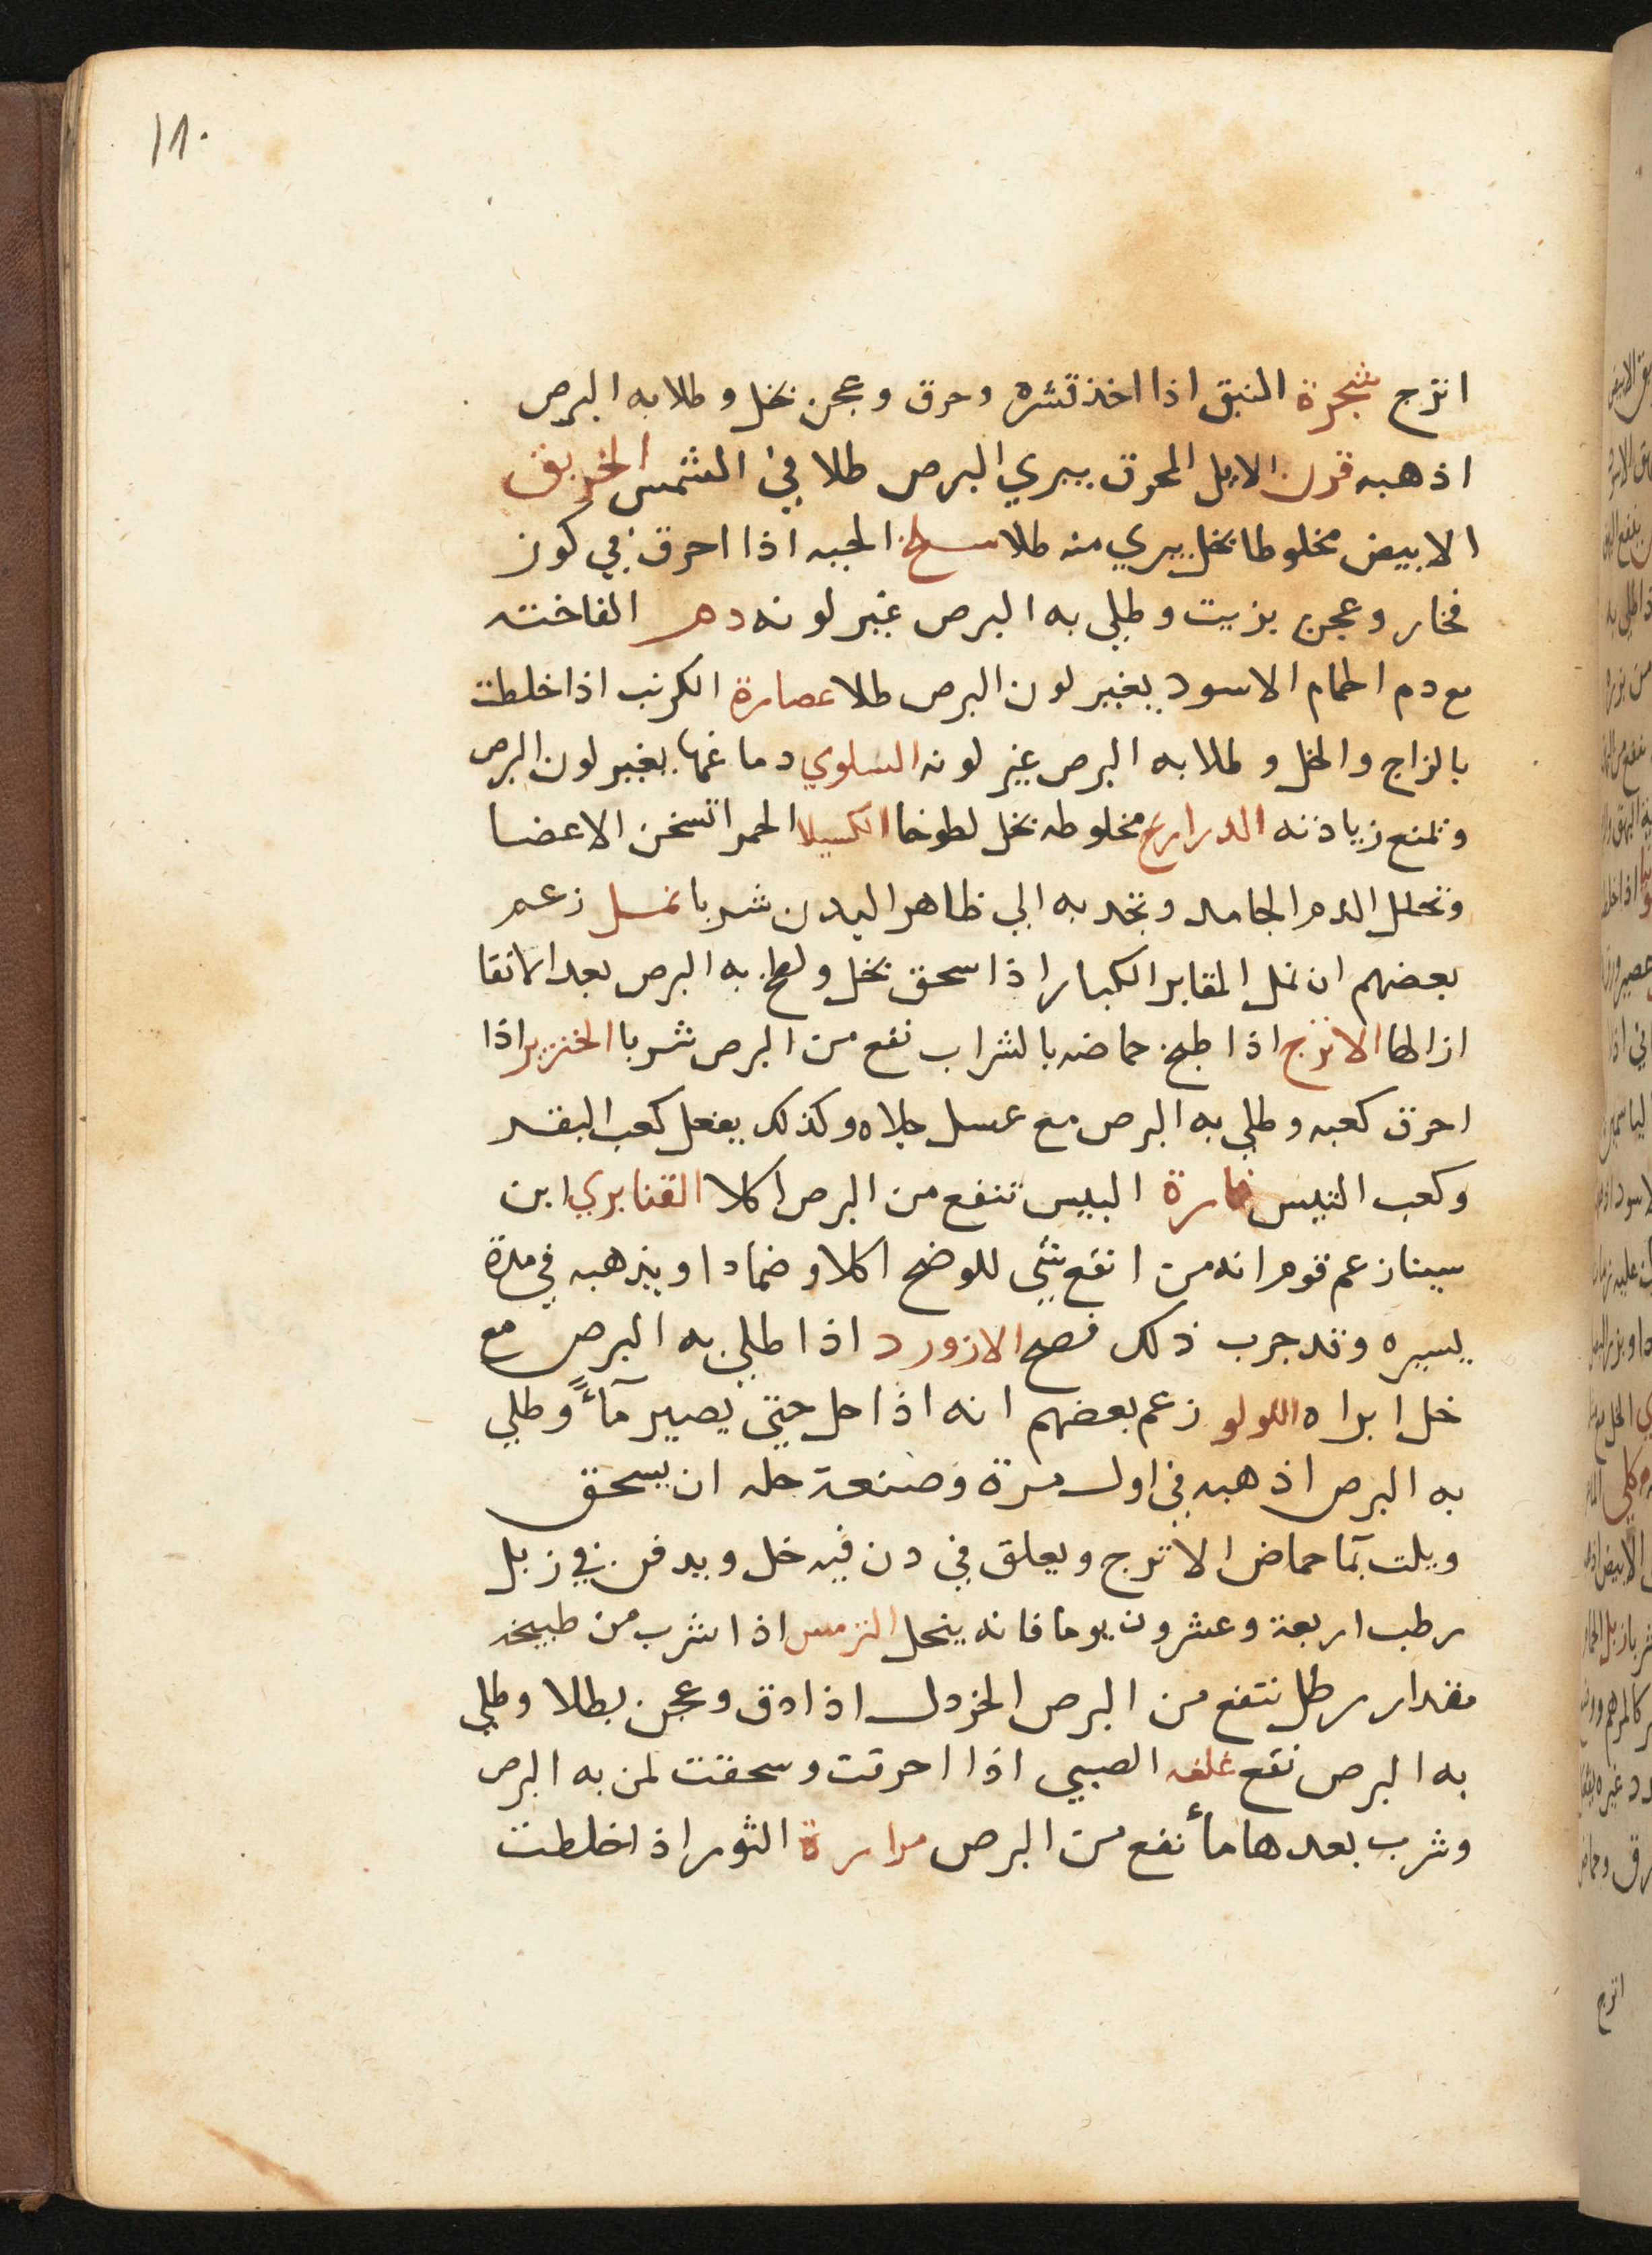 ١٨٠
اترج شجرة النبق اذا اخذ قشره وحرق وعجن بخل وطلا به البرص
اذهبه قرن الايل المحرق يبري البرص طلا في الشمس الخربق
الابيض مخلوطا بخل يبري منه طلا سلخ الحيه اذا احرق في كوز
فخار وعجن بزيت وطلي به البرص غير لونه دم الفاخته
مع دم الحمام الاسود يغير لون البرص طلا عصارة الكرنب اذا خلطت
بالزاج والخل وطلا به البرص غير لونه السلوي دماغها يغير لون البرص
وتمنع زيادته الدراريح مخلوطه بخل لطوخا الكسيلا الحمرا تسخن الاعضا
وتحلل الدم الجامد وتجد به الي ظاهر البدن شربا نمل زعم
بعضهم ان نمل المقابر الكبار اذا سحق بخل ولطخ به البرص بعد الانقا
ازالها الاترج اذا طبخ حماضه بالشراب نفع من البرص شربا الخنزير اذا
احرق كعبه وطلي به البرص مع عسل جلاه وكذلك يفعل كعب البقر
وكعب التيس فارة البيس تنفع من البرص اكلا القنابري ابن
سينا زعم قوم انه من انفع شي للوضح اكلا وضمادا ويذهبه في مدة
يسيره وقد جرب ذلك فصح الازورد اذا طلي به البرص مع
خل ابراه اللولو زعم بعضهم انه اذا حل حتي يصير مآءً وطلي
به البرص اذهبه في اول مرة وصنعة حله ان يسحق
ويلت بما حماض الاترج ويعلق في دن فيه خل ويدفن في زبل
رطب اربعة وعشرون يوما فانه ينحل الترمس اذا شرب من طبيخه
مقدار رطل نتفع من البرص الخردل اذا دق وعجن بطلا وطلي
به البرص نفع غلفه الصبي اذا احرقت وسحقت لمن به البرص
وشرب بعدها مأ نفع من البرص مرارة الثور اذا خلطت
اترج